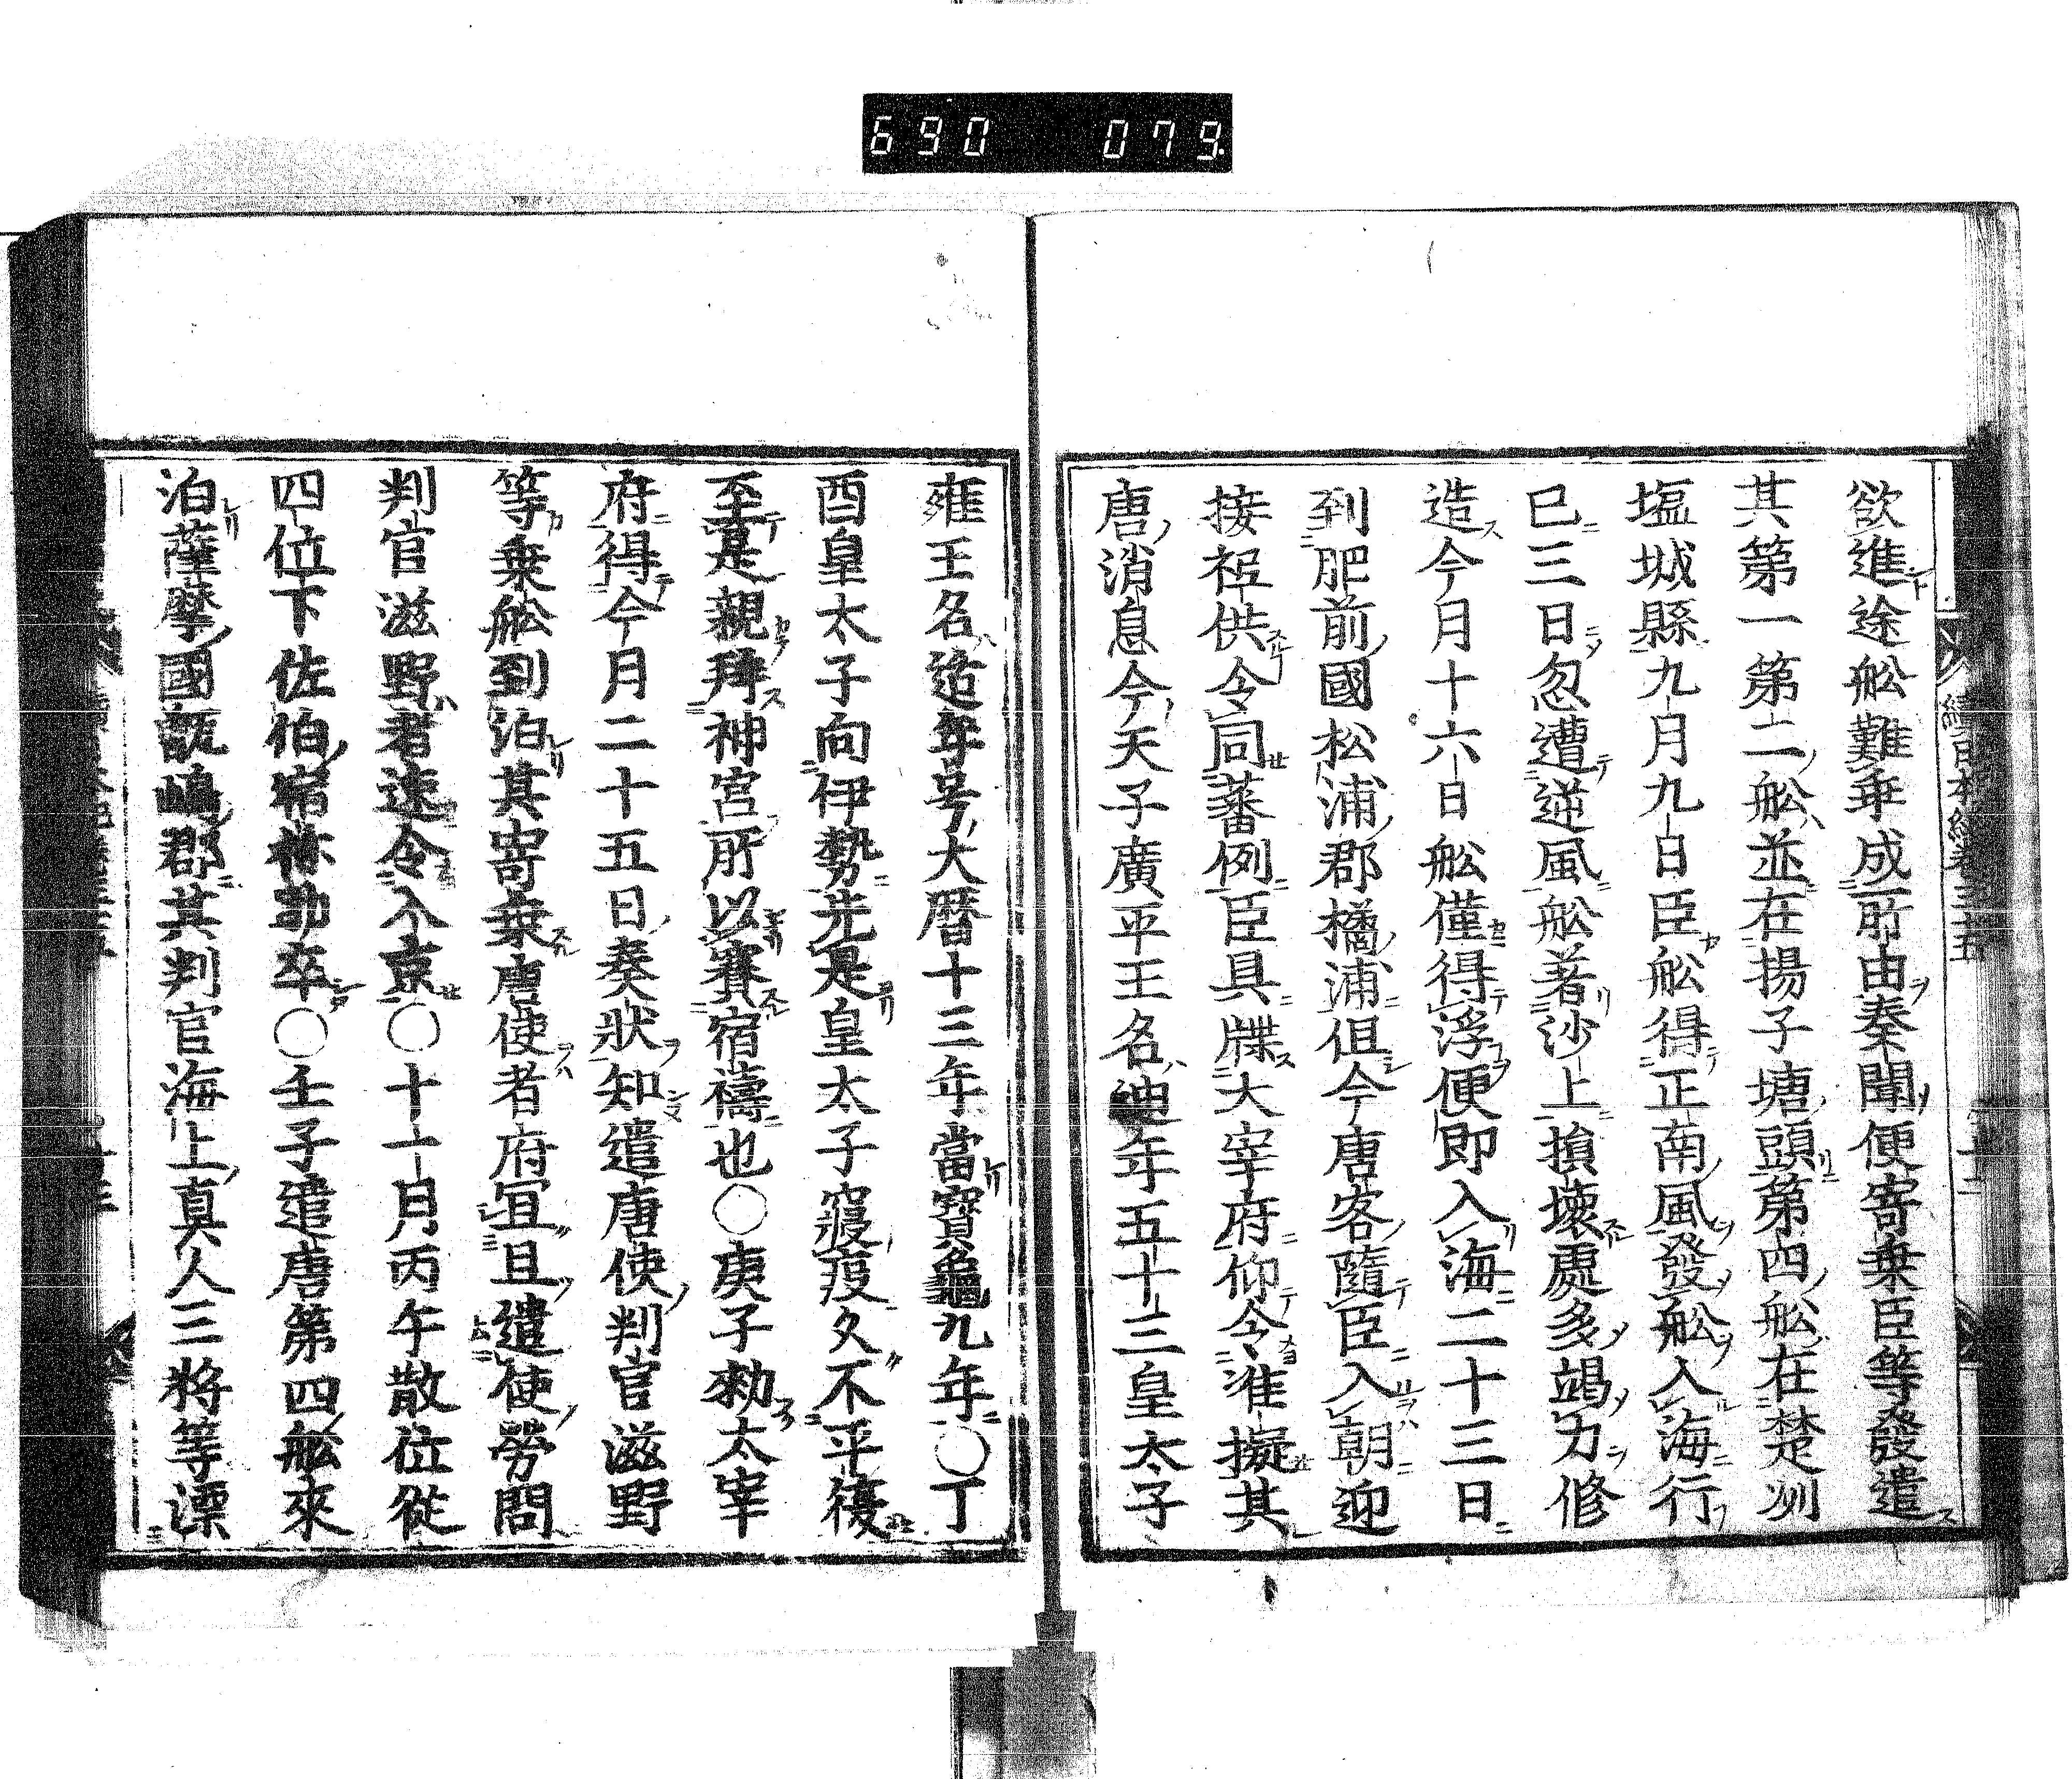 690 079.
欲進途舩難乖成所由奏聞便寄乗臣等發遣
其第一第二舩並在揚子塘頭第四舩在楚州
塩城縣九月九日臣舩得正南風發舩入海行
已三日忽遭逆風舩著沙上損壊處多竭力修
造今月十六日舩僅得浮便即入海二十三日
到肥前國松浦郡橘浦但今唐客隨臣入朝迎
接祗供令同蕃例臣具牒大宰府仰令准擬其
唐消息今天子廣平王名迪年五十三皇太子
雍王名适年号大暦十三年當寳龜九年〇丁
酉皇太子向伊勢先是皇太子寢疫久不平復
至是親拜神宮所以賽宿禱也〇庚子勑太宰
府得今月二十五日奏狀知遣唐使判官滋野
等乗舩到泊其寄乗唐使者府宜且遣使勞問
判官滋野者速令入京〇十一月丙午散位從
四位下佐伯宿祢助卒〇壬子遣唐第四舩來
泊薩摩國甑嶋郡其判官海上真人三狩等漂
續日本紀巻三十五